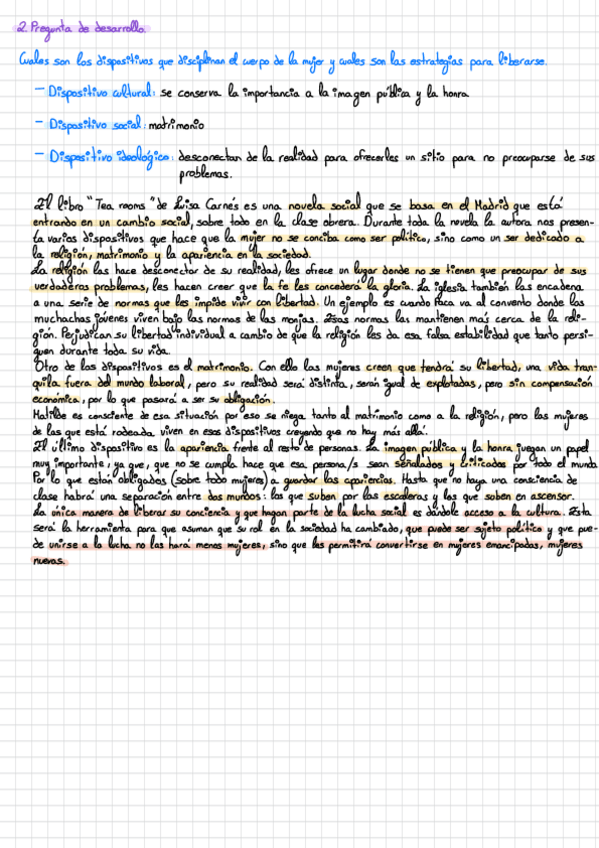 2. Pregunta de desarrollo.
Cuales son los dispositivos que disciplinan el cuerpo de la mujer y cuales son las estrategias para liberarse.
- Dispositivo cultural: se conserva la importancia a la imagen pública y la honra
- Dispositivo social: matrimonio
- Dispositivo ideológico: desconectan de la realidad para ofrecerles un sitio para no preocuparse de sus
problemas.
El libro "Tea rooms" de Luisa Carnés es una novela social que se basa en el Madrid que está
entrando en un cambio social, sobre todo en la clase obrera. Durante toda la novela la autora nos presen-
ta varios dispositivos que hace que la mujer no se conciba como ser político, sino como un ser dedicado a
la religión, matrimonio y la apariencia en la sociedad.
La religión las hace desconectar de su realidad, les ofrece un lugar donde no se tienen que preocupar de sus
verdaderos problemas, les hacen creer que la fe les concederá la gloria. La iglesia también las encadena
a una serie de normas que les impide vivir con libertad. Un ejemplo es cuando Paca va al convento donde las
muchachas jóvenes viven bajo las normas de las monjas. Esas normas las mantienen más cerca de la reli-
gión. Perjudican su libertad individual a cambio de que la religión les da esa falsa estabilidad que tanto persi-
guen durante toda su vida.
Otro de los dispositivos es el matrimonio. Con ello las mujeres creen que tendrá su libertad, una vida tran-
quila fuera del mundo laboral, pero su realidad será distinta, serán igual de explotadas, pero sin compensación
económica, por lo que pasará a ser su obligación.
Matilde es consciente de esa situación por eso se niega tanto al matrimonio como a la religión, pero las mujeres
de las que está rodeada viven en esos dispositivos creyendo que no hay más allá.
El último dispositivo es la apariencia frente al resto de personas. La imagen pública y la honra juegan un papel
muy importante, ya que, que no se cumpla hace que esa persona/s sean señalados y criticados por todo el mundo.
Por lo que están obligados (sobre todo mujeres) a guardar las apariencias. Hasta que no haya una consciencia de
clase habrá una separación entre dos mundos: las que suben por las escaleras y las que suben en ascensor.
La única manera de liberar su conciencia y que hagan parte de la lucha social es dándole acceso a la cultura. Esta
será la herramienta para que asuman que su rol en la sociedad ha cambiado, que puede ser sujeto político y que pue-
de unirse a la lucha no las hará menos mujeres, sino que les permitirá convertirse en mujeres emancipadas, mujeres
nuevas.